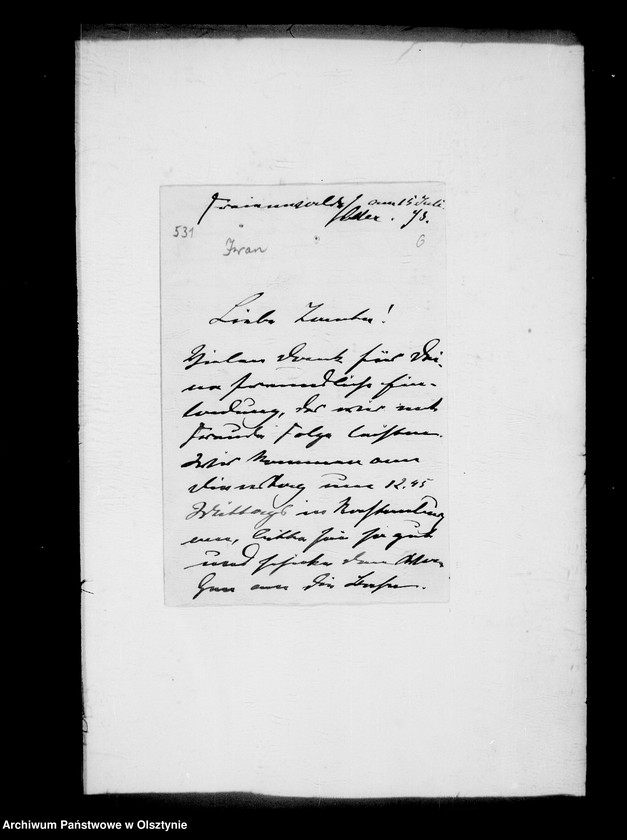 Freienwalde/ am 15 Juli
Oder. 73.
531
Iwan
6
Liebe Tante!
Vielen Dank für Dei-
ne freundliche Ein-
ladung, der wir mit
Freude Folge leisten.
Wir kommen am
Dienstag um 12.45
Mittags in Rastenburg
an, bitte sei so gut
und schicke den Wa-
gen an die Bahn.
Archiwum Państwowe w Olsztynie